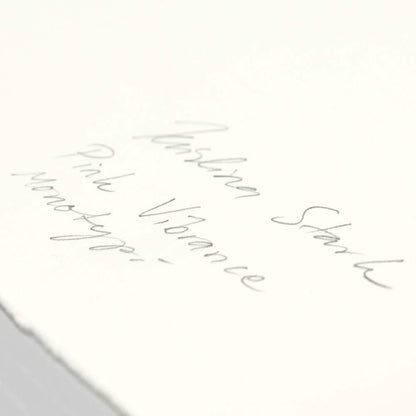 Stark
Pink Vibrance
Monotype